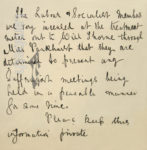 The Labour & Socialist Members
are very incensed at the treatment
meted out to Will Thorne through
Miss Pankhurst that they are
determined to prevent any
Suffragist meetings being
held in a peaceable manner
for some time.
Please keep this
information private